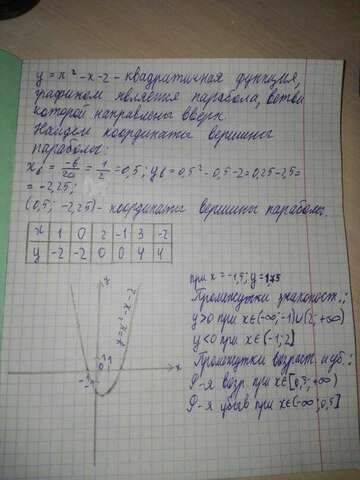 y = x² - x - 2 - квадратичная функция,
графиком является парабола, ветви
которой направлены вверх.
Найдем координаты вершины
параболы:
xв = -b/2a = 1/2 = 0,5; yв = 0,5² - 0,5 - 2 = 0,25 - 2,5 =
= -2,25;
(0,5; -2,25) - координаты вершины параболы.
x 1 0 2 -1 3 -2
y -2 -2 0 0 4 4
y = x² - x - 2
x
0
при x = -1,5; y = 1,75
Промежутки знакопост.:
y>0 при x∈(-∞; -1)∪(2; +∞)
y<0 при x∈(-1; 2]
Промежутки возраст. и уб.:
Ф-я возр. при x∈[0,5; +∞)
Ф-я убыв при x∈(-∞; 0,5]